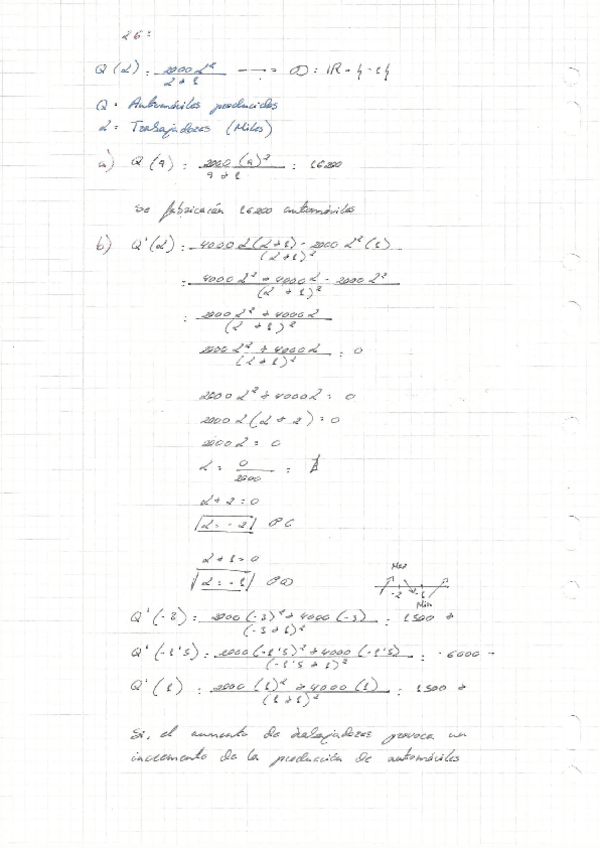 26:
Q(L) : 2000 L² / L + 1 → D: ℝ - {-1}
Q = Automóviles producidos
L = Trabajadores (Miles)
a) Q(9) : 2000 (9)² / 9 + 1 : 16200
Se fabricarán 16200 automóviles
b) Q'(L) : 4000 L (L+1) - 2000 L² (1) / (L+1)²
: 4000 L² + 4000 L - 2000 L² / (L + 1)²
: 2000 L² + 4000 L / (L + 1)²
2000 L² + 4000 L / (L + 1)² : 0
2000 L² + 4000 L : 0
2000 L (L + 2) : 0
2000 L : 0
L : 0 / 2000 :
L + 2 : 0
L : -2 PC
L + 1 : 0
L : -1 PD
Max
-2 -1
Min
Q'(-3) : 2000 (-3)² + 4000 (-3) / (-3 + 1)² : 1500 +
Q'(-1'5) : 2000 (-1'5)² + 4000 (-1'5) / (-1'5 + 1)² : -6000 -
Q'(1) : 2000 (1)² + 4000 (1) / (1+1)² : 1500 +
Si, el aumento de trabajadores provoca un
incremento de la producción de automóviles